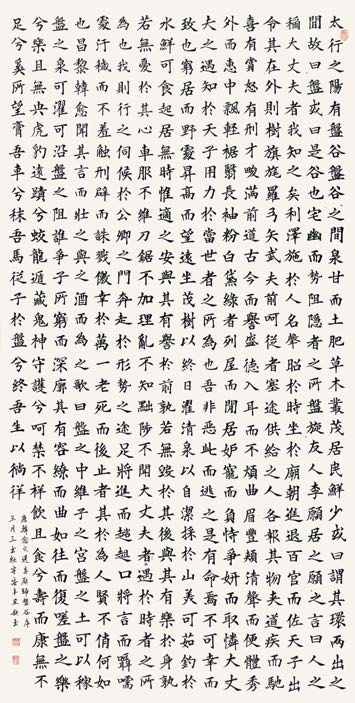 太行之陽有盤谷盤谷之間泉甘而土肥草木叢茂居民鮮少或曰謂其環兩山之
間故曰盤或曰是谷也宅幽而勢阻隱者之所盤旋友人李願居之願之言曰人之
稱大丈夫者我知之矣利澤施於人名聲昭於時坐於廟朝進退百官而佐天子出
令其在外則樹旗旄羅弓矢武夫前呵從者塞途供給之人各執其物夾道疾而馳
喜有賞怒有刑才畯滿前道古今而譽盛德入耳而不煩曲眉豐頰清聲而便體秀
外而惠中飄輕裾翳長袖粉白黛綠者列屋而閒居妒寵而負恃爭妍而取憐大丈
夫之遇知於天子用力於當世者之所為也吾非惡此而逃之是有命焉不可幸而
致也窮居而野處昇高而望遠坐茂樹以終日濯清泉以自潔採於山美可茹釣於
水鮮可食起居無時惟適之安與其有譽於前孰若無毀於其後與其有樂於身孰
若無憂於其心車服不維刀鋸不加理亂不知黜陟不聞大丈夫不遇於時者之所
為也我則行之伺候於公卿之門奔走於形勢之途足將進而趑趄口將言而囁嚅
處汙穢而不羞觸刑辟而誅戮徼倖於萬一老死而後止者其於為人賢不肖何如
也昌黎韓愈聞其言而壯之與之酒而為之歌曰盤之中維子之宮盤之土可以稼
盤之泉可濯可沿盤之阻誰爭子所窈而深廓其有容繚而曲如往而復嗟盤之樂
兮樂且無央虎豹遠跡兮蛟龍遁藏鬼神守護兮呵禁不祥飲且食兮壽而康無不
足兮奚所望膏吾車兮秣吾馬從子於盤兮終吾生以徜徉
唐韓愈文送李願歸盤谷序
三月三